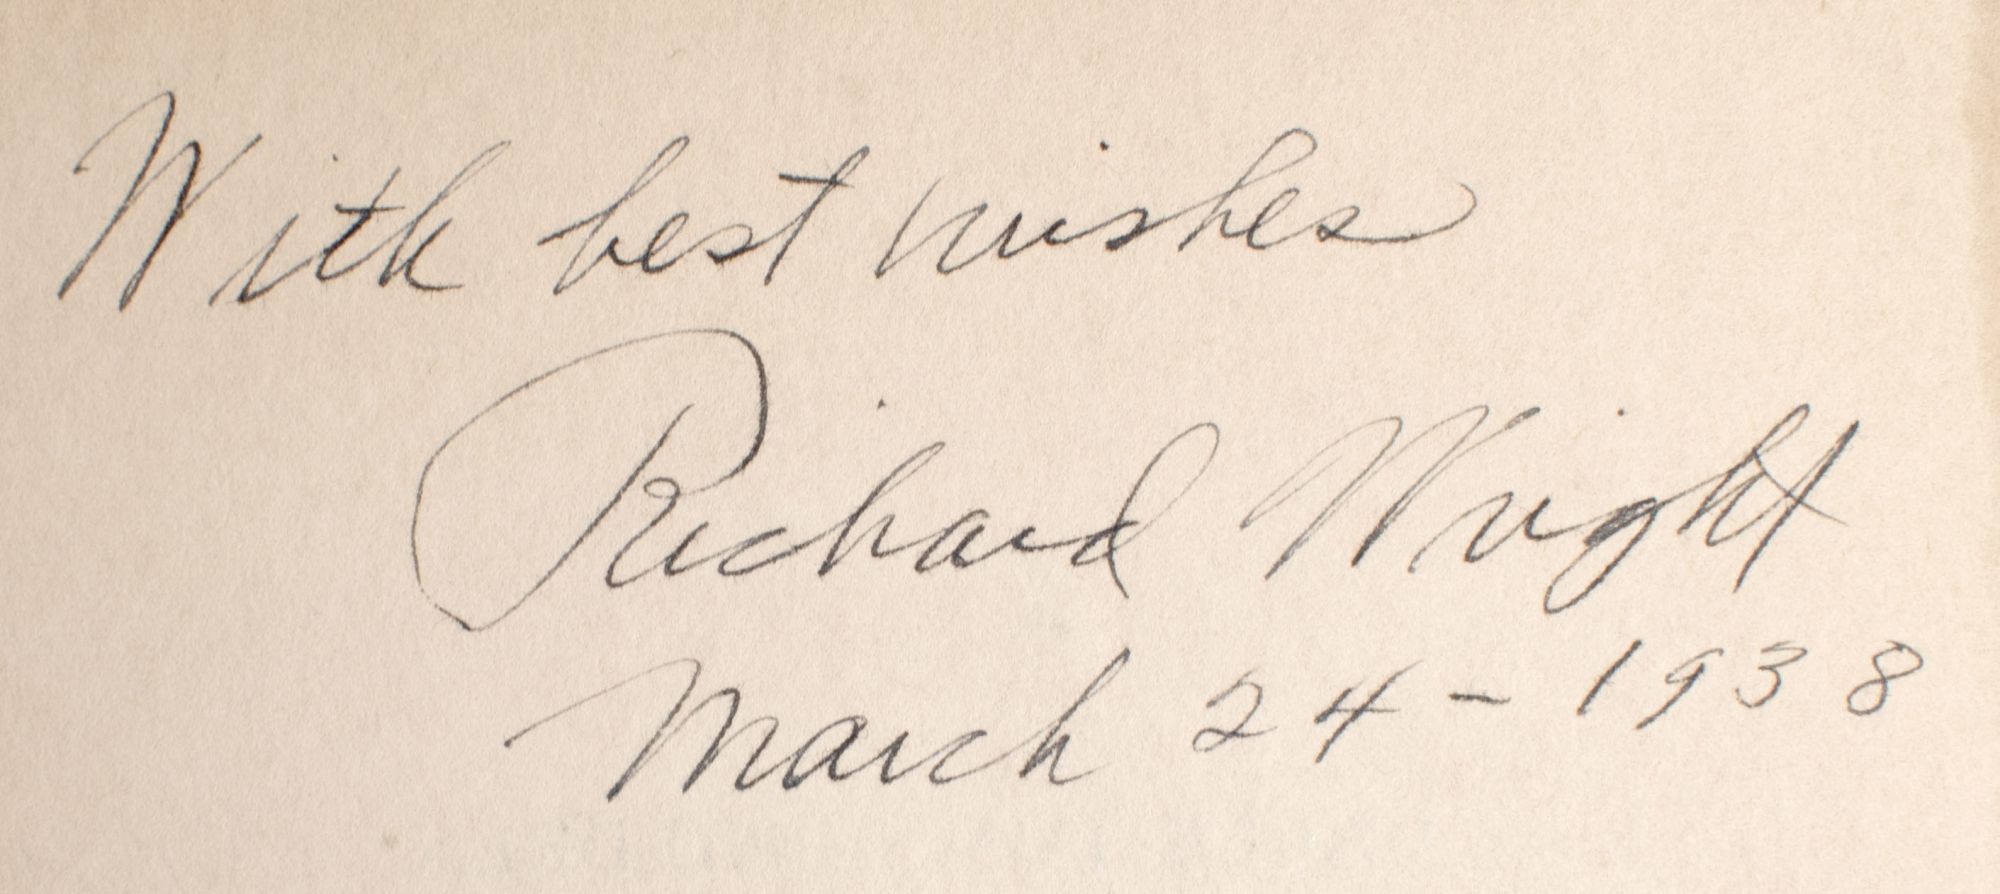 With best wishes
Richard Wright
March 24 - 1938